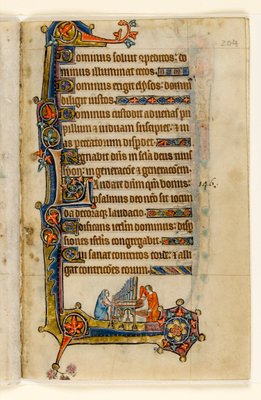 204
Dominus soluit cōpeditos: do
minus illuminat cecos.
Dominus erigit elysos: domin
diligit iustos.
Dominus custodit aduenas pu
pillum & uiduam suscipiet: & ui
as peccatorum disperdet.
Regnabit dn̄s in scl̄a deus tuus
syon: in generacōe & generacōem
Laudate dn̄m qm̄ bonus: 146.
psalmus deo nr̄o sit iocun
da decoraq; laudacio.
Edificans ierl̄m dominus: disp̄
siones isr̄lis congregabit.
Qui sanat contritos corde: & alli
gat contriciones eorum.